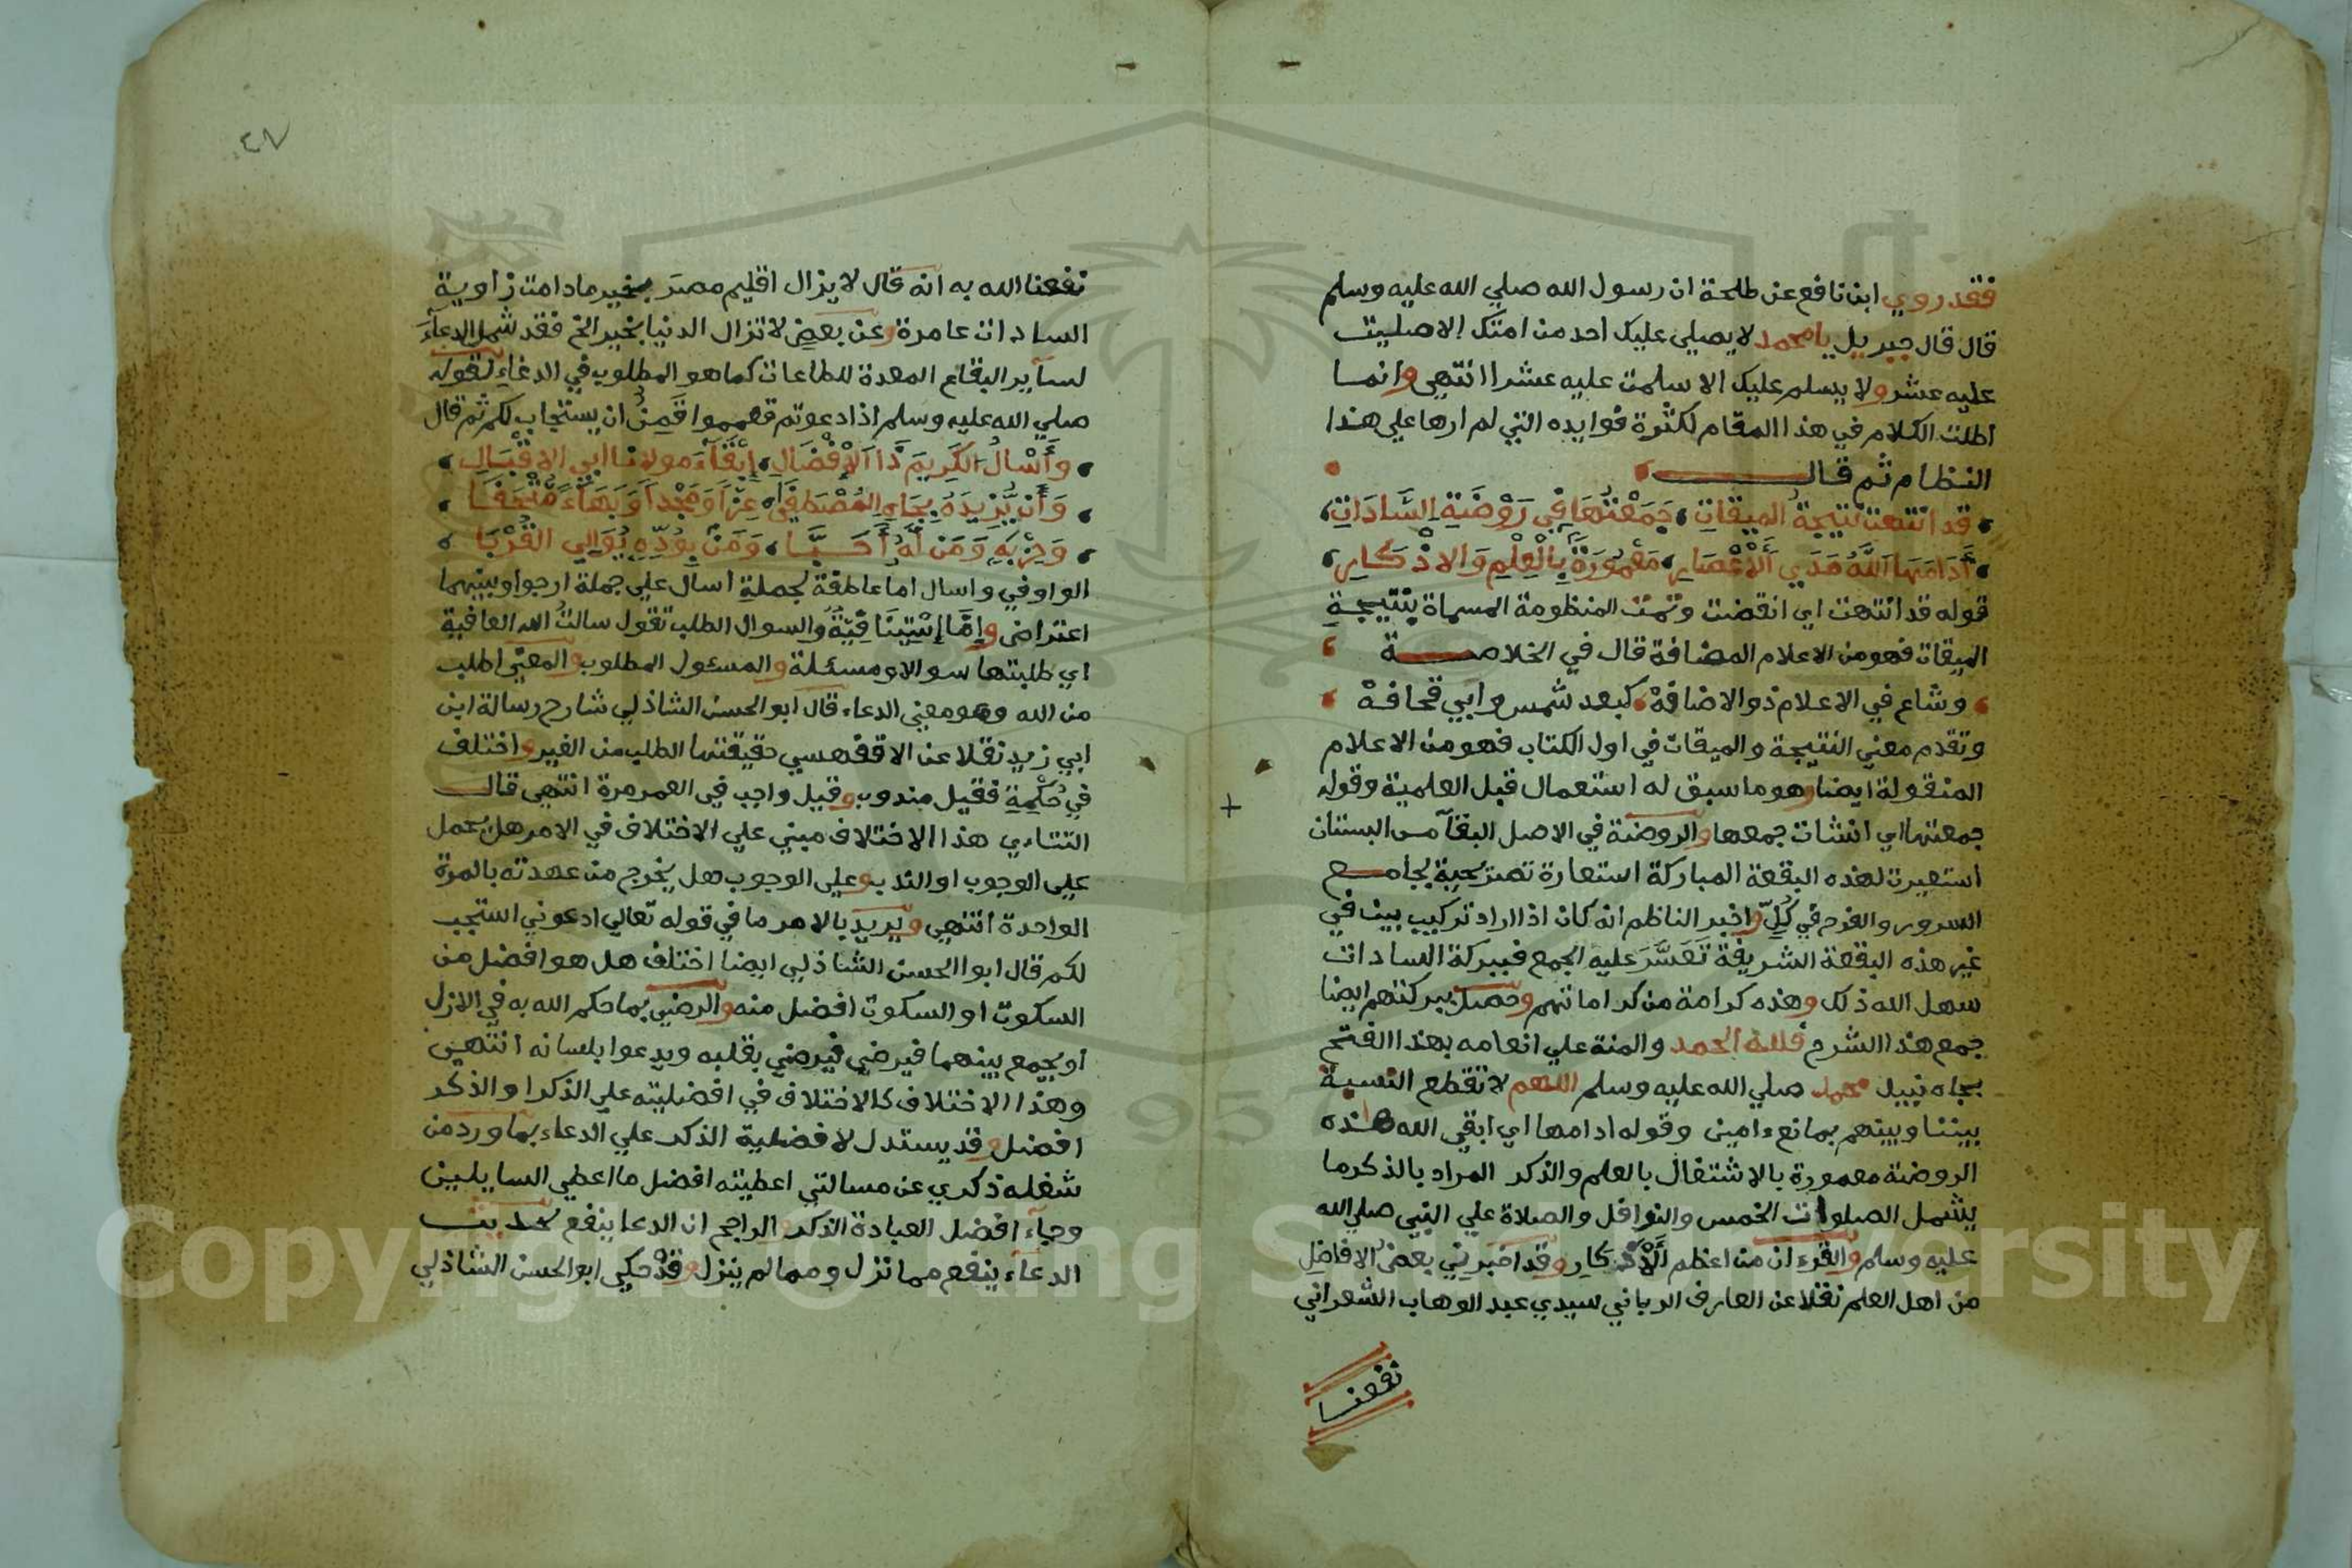 فقد روي ابن نافع عن طلحة ان رسول الله صلي الله عليه وسلم
قال قال جبريل يا محمد لا يصلي عليك احد من امتك الا صليت
عليه عشر ولا يسلم عليك الا سلمت عليه عشرا انتهي وانما
اطلت الكلام في هذا المقام لكثرة فوايده التي لم ارها علي هذا
النظام ثم قال
قد انتهت نتيجة الميقات جمعتها في روضة السادات
أدامها الله مدي الأعصار معمورة بالعلم والاذكار
قوله قد انتهت اي انقضت وتمت المنظومة المسماة بنتيجة
الميقات فهو من الاعلام المضافة قال في الخلاصة
وشاع في الاعلام ذو الاضافة كبعد شمس وابي قحافة
وتقدم معني النتيجة والميقات في اول الكتاب فهو من الاعلام
المنقولة ايضا وهو ما سبق له استعمال قبل العلمية وقوله
جمعتها اي انشات جمعها والروضة في الاصل البقآ من البستان
استعيرت لهذه البقعة المباركة استعارة تصريحية بجامع
السرور والفرح في كلٍّ واخبر الناظم انه كان اذا اراد تركيب بيت في
غير هذه البقعة الشريفة تعسَّر عليه الجمع فببركة السادات
سهل الله ذلك وهذه كرامة من كراماتهم وحصل ببركتهم ايضا
جمع هذا الشرح فلله الحمد والمنة علي انعامه بهذا الفتح
بجاه نبيل محمد صلي الله عليه وسلم اللهم لا تقطع النسبة
بيننا وبينهم بمانع ءامين وقوله ادامها اي ابقي الله هذه
الروضة معمورة بالاشتغال بالعلم والذكر المراد بالذكر ما
يشمل الصلوات الخمس والنوافل والصلاة علي النبي صلي الله
عليه وسلم والقرءان من اعظم الأذكار وقد اخبرني بعض الافاضل
من اهل العلم نقلا عن العارف الرباني سيدي عبد الوهاب الشعراني
نفعنا
٤٧
نفعنا الله به انه قال لا يزال اقليم مصر بخير ما دامت زاوية
السادات عامرة وعن بعض لا تزال الدنيا بخير الخ فقد شمل الدعآء
لسآير البقاع المعدة للطاعات كما هو المطلوب في الدعاء لقوله
صلي الله عليه وسلم اذا دعوتم فعمموا فَمِنٌ ان يستجاب لكم ثم قال
وأسأل الكريم ذا الإفضال إبقآء مولانا ابي الاقبال
وأن يزيده بجاه المصطفي عزا ومجدا وبهاء متحفا
وحزبه ومن له أحبا ومن بودّه يوالي القربا
الواو في واسال اما عاطفة لجملة اسال علي جملة ارجوا وبينهما
اعتراض وإمّا إستينافيّة والسوال الطلب تقول سالتُ الله العافية
اي طلبتها سوالا ومسئلة والمسئول المطلوب والمعني اطلب
من الله وهو معني الدعاء قال ابو الحسن الشاذلي شارح رسالة ابن
ابي زيد نقلا عن الاقفهسي حقيقتها الطلب من الغير واختلف
في حُكْمِهِ فقيل مندوب وقيل واجب في العمر مرة انتهي قال
التتاءي هذا الاختلاف مبني علي الاختلاف في الامر هل يحمل
علي الوجوب او الندب وعلي الوجوب هل يخرج من عهدته بالمرة
الواحدة انتهي ويريد بالامر ما في قوله تعالي ادعوني استجب
لكم قال ابوا الحسن الشاذلي ايضا اختلف هل هو افضل من
السكوت او السكوت افضل منه والرضي بما حكم الله به في الازل
او يجمع بينهما فيرضي فيرضي بقلبه ويدعوا بلسانه انتهي
وهذا الاختلاف كالاختلاف في افضليته علي الذكر او الذكر
افضل وقد يستدل لافضلية الذكر علي الدعاء بما ورد من
شغله ذكري عن مسالتي اعطيته افضل ما اعطي السايلين
وجآء افضل العبادة الذكر والراجح ان الدعا ينفع لحديث
الدعآء ينفع مما نزل ومما لم ينزل وقد حكي ابو الحسن الشاذلي
Copyright © King Saud University